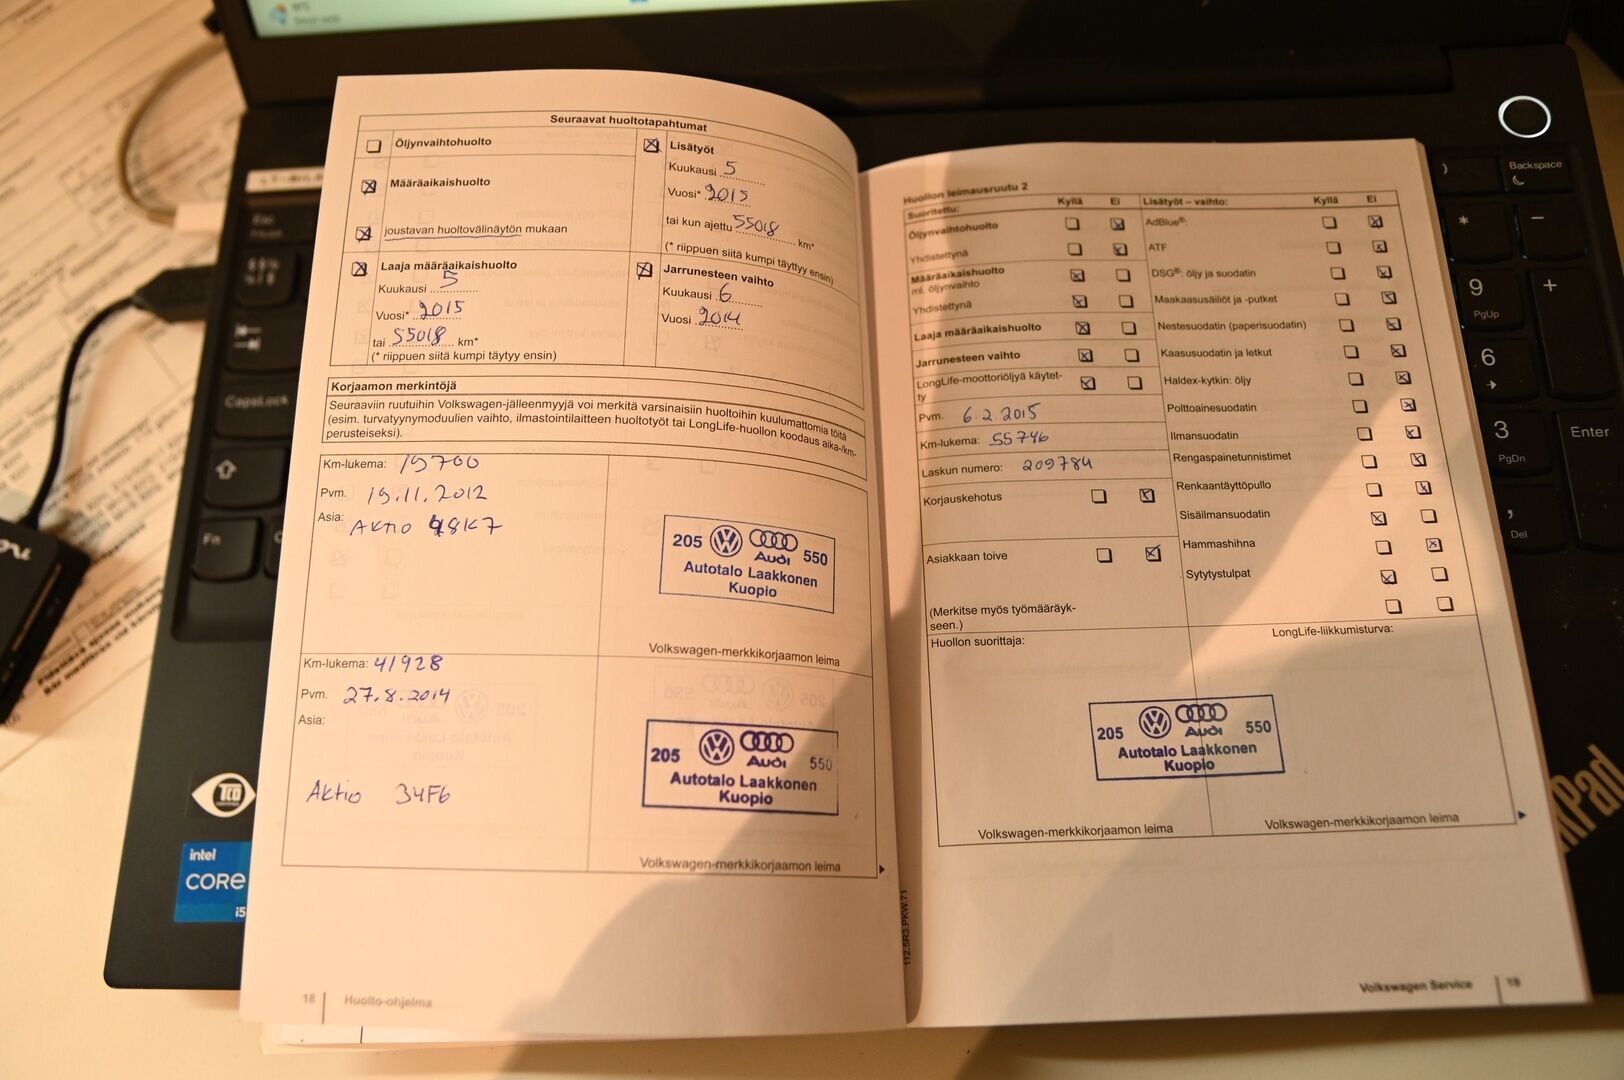 Seuraavat huoltotapahtumat
Öljynvaihtohuolto
Määräaikaishuolto
joustavan huoltovälinäytön mukaan
Laaja määräaikaishuolto
Kuukausi 5
Vuosi* 2015
tai 55018 km*
(* riippuen siitä kumpi täytyy ensin)
Lisätyöt
Kuukausi 5
Vuosi* 2015
tai kun ajettu 55018 km*
(* riippuen siitä kumpi täyttyy ensin)
Jarrunesteen vaihto
Kuukausi 6
Vuosi 2014
Korjaamon merkintöjä
Seuraaviin ruutuihin Volkswagen-jälleenmyyjä voi merkitä varsinaisiin huoltoihin kuulumattomia töitä
(esim. turvatyynymoduulien vaihto, ilmastointilaitteen huoltotyöt tai LongLife-huollon koodaus aika-/km-
perusteiseksi).
Km-lukema: 19700
Pvm. 19.11.2012
Asia: AKTIO 48K7
205 Audi 550
Autotalo Laakkonen
Kuopio
Volkswagen-merkkikorjaamon leima
Km-lukema: 41928
Pvm. 27.8.2014
Asia:
Aktio 34F6
205 Audi 550
Autotalo Laakkonen
Kuopio
Volkswagen-merkkikorjaamon leima
18 Huolto-ohjelma
Huollon leimausruutu 2
Suoritettu: Kyllä Ei
Öljynvaihtohuolto
Yhdistettynä
Määräaikaishuolto
ml. öljynvaihto
Yhdistettynä
Laaja määräaikaishuolto
Jarrunesteen vaihto
LongLife-moottoriöljyä käytet-
ty
Pvm. 6.2.2015
Km-lukema: 55746
Laskun numero: 209784
Korjauskehotus
Asiakkaan toive
(Merkitse myös työmääräyk-
seen.)
Lisätyöt – vaihto: Kyllä Ei
AdBlue®:
ATF
DSG®: öljy ja suodatin
Maakaasusäiliöt ja -putket
Nestesuodatin (paperisuodatin)
Kaasusuodatin ja letkut
Haldex-kytkin: öljy
Polttoainesuodatin
Ilmansuodatin
Rengaspainetunnistimet
Renkaantäyttöpullo
Sisäilmansuodatin
Hammashihna
Sytytystulpat
Huollon suorittaja:
LongLife-liikkumisturva:
205 Audi 550
Autotalo Laakkonen
Kuopio
Volkswagen-merkkikorjaamon leima
Volkswagen-merkkikorjaamon leima
112.5R3.PKW.71
Volkswagen Service 19
Esc
CapsLock
Fn
intel
CORE
i5
TCO
CERTIFIED
Backspace
*
-
9
PgUp
+
6
3
PgDn
Enter
,
Del